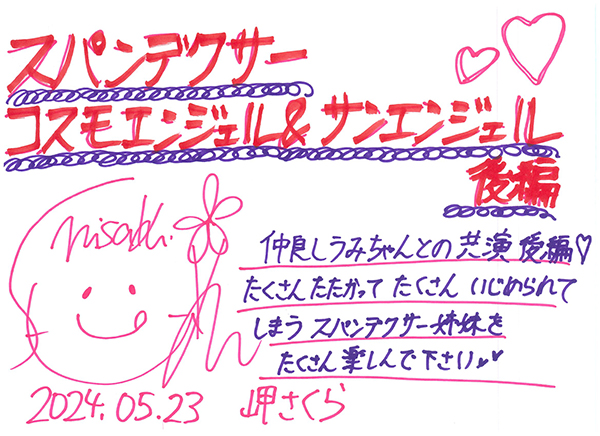 スパンデクサー
コスモエンジェル&サンエンジェル
後編
misaki.
仲良しうみちゃんとの共演後編♡
たくさんたたかってたくさんいじめられて
しまうスパンデクサー姉妹を
たくさん楽しんで下さい♥♥
2024.05.23 岬さくら